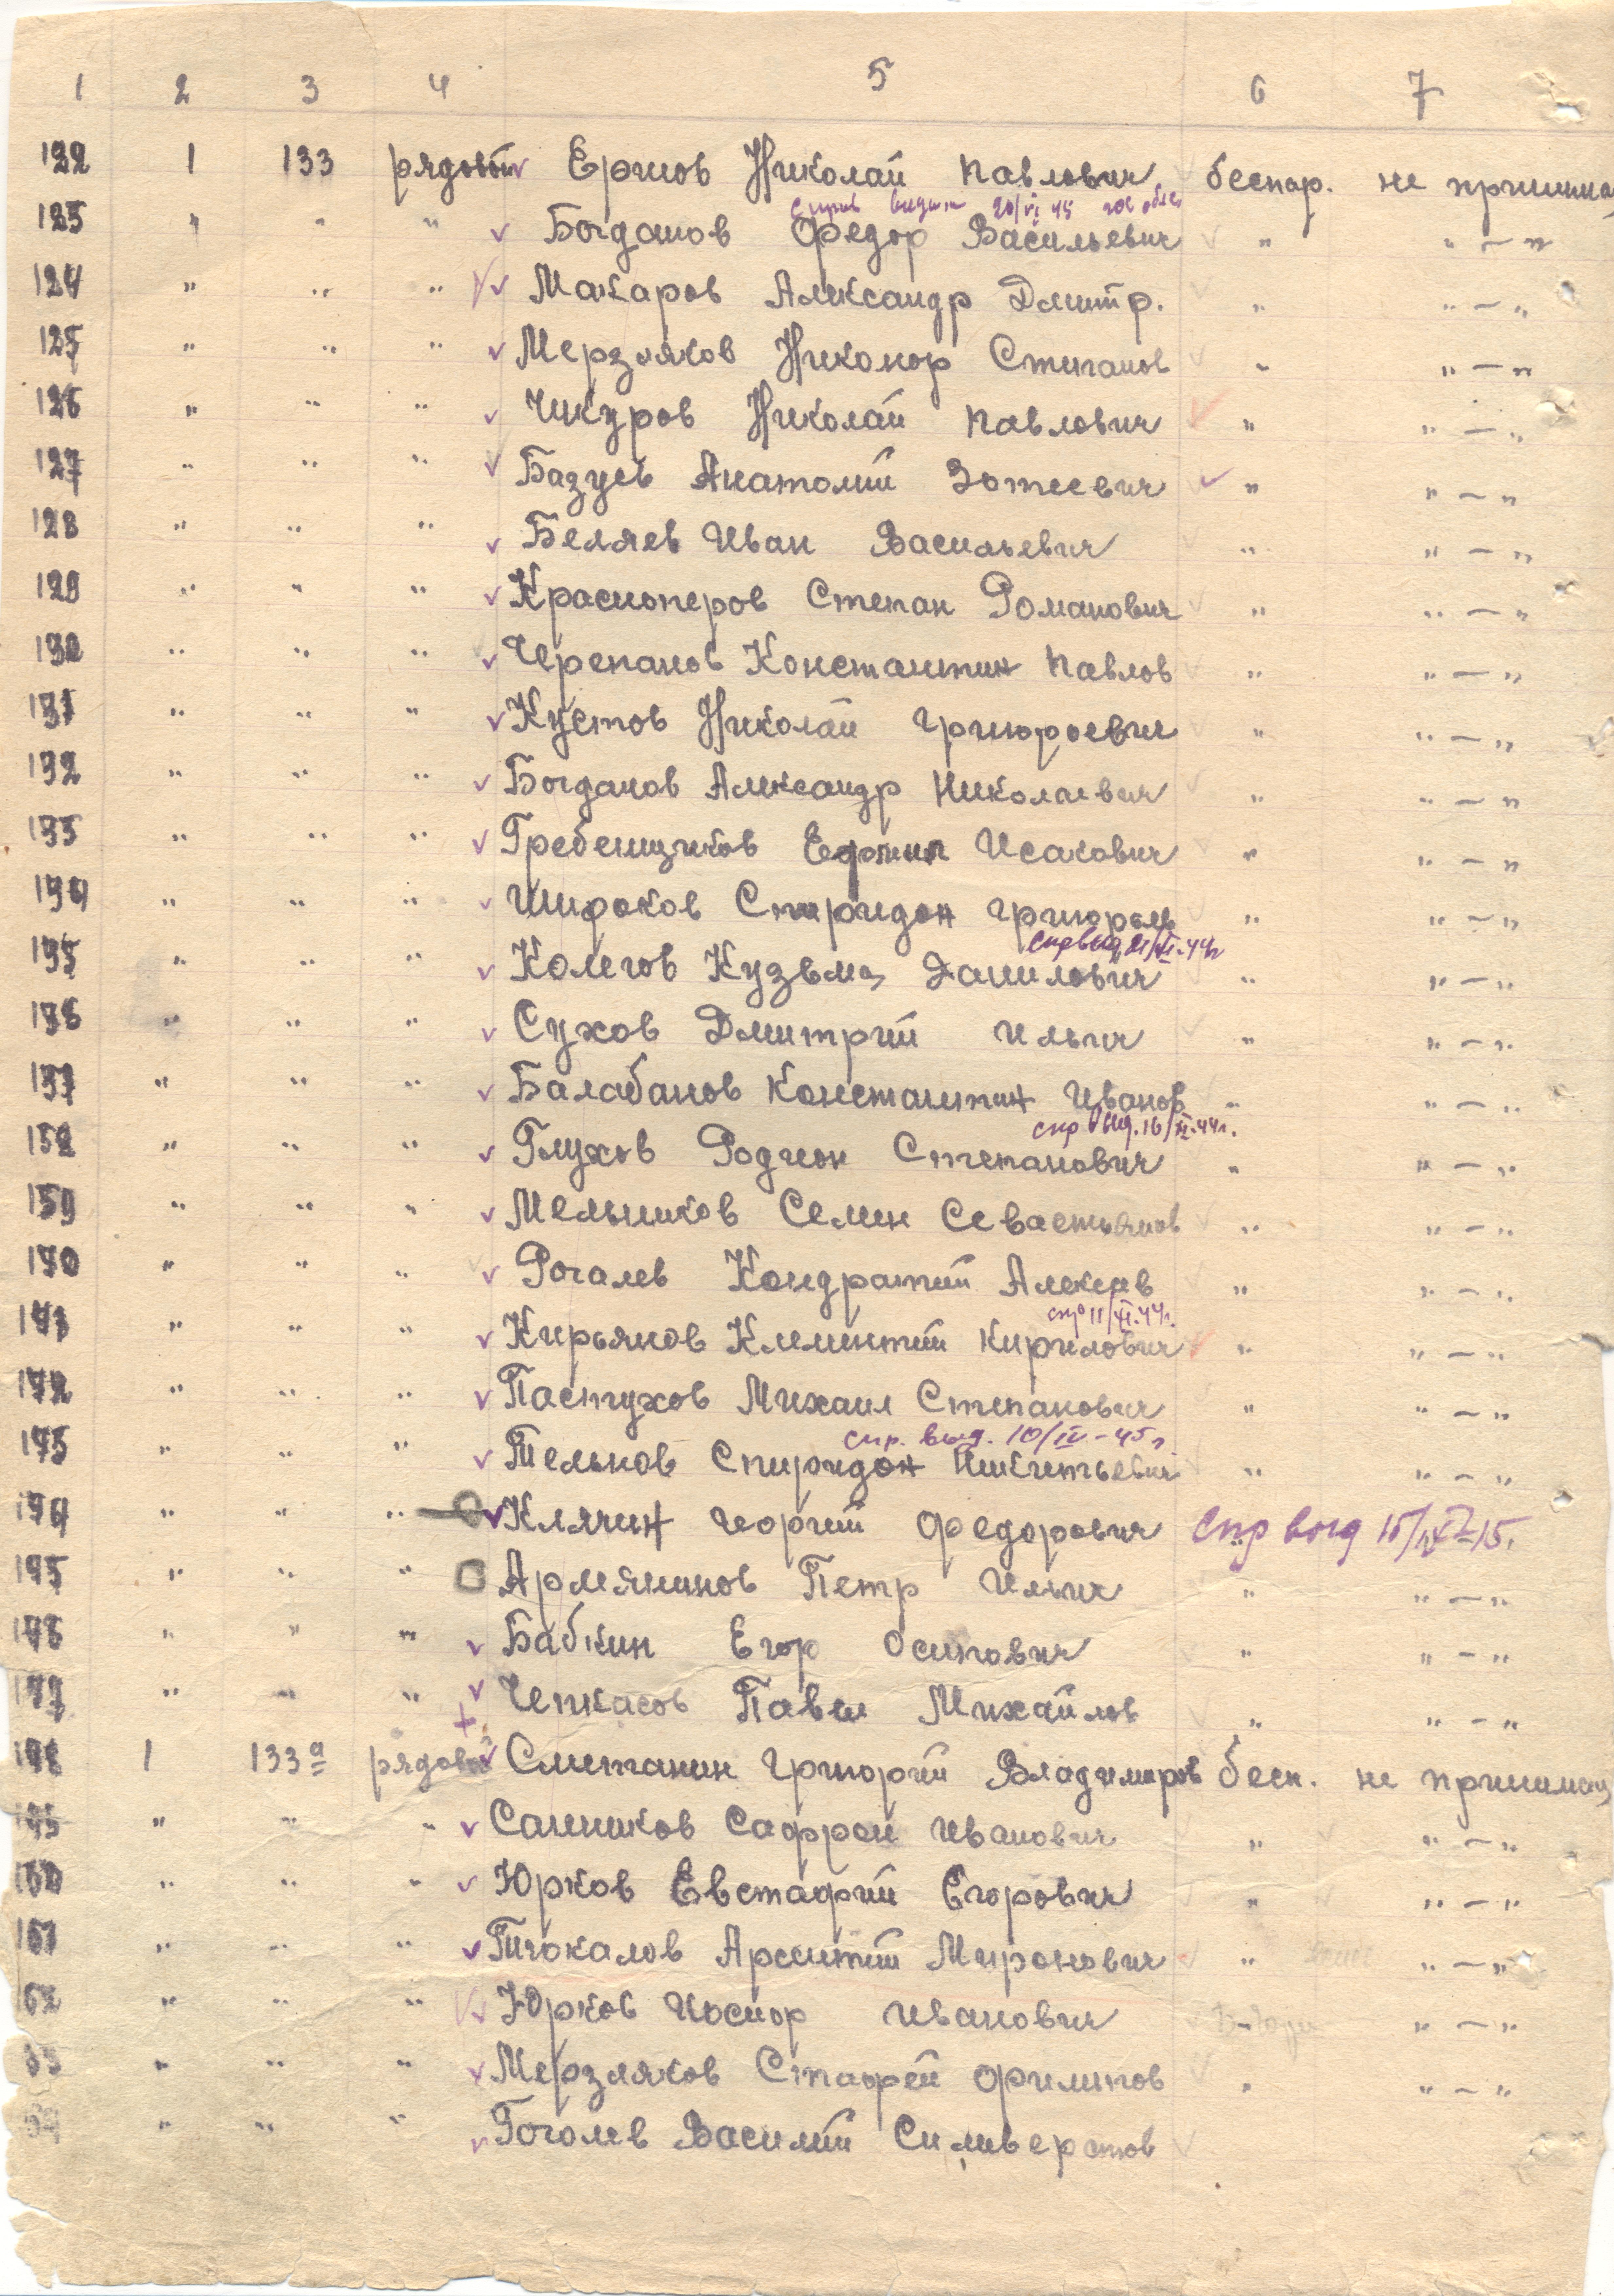 1 2 3 4 5 6 7
122 1 133 рядовой Ершов Николай Павлович беспар. не принима
123 " " " Богданов Федор Васильевич " " — "
124 " " " Макаров Александр Дмитр. " " — "
125 " " " Мерзляков Никонор Степанов " " — "
126 " " " Чикуров Николай Павлович " " — "
127 " " " Базуев Анатолий Зотеевич " " — "
128 " " " Беляев Иван Васильевич " " — "
129 " " " Красноперов Степан Романович " " — "
130 " " " Черепанов Константин Павлов " " — "
131 " " " Кустов Николай Григорьевич " " — "
132 " " " Богданов Александр Николаевич " " — "
133 " " " Гребенщиков Ефим Исакович " " — "
134 " " " Широков Спиридон Григорьев " " — "
спр выд 21/XI.44г
135 " " " Колегов Кузьма Данилович " " — "
136 " " " Сухов Дмитрий Ильич " " — "
137 " " " Балабанов Константин Иванов " " — "
спр выд. 16/XI.44г.
138 " " " Глухов Родион Степанович " " — "
139 " " " Мельников Семен Севастьянов " " — "
140 " " " Рогалев Кондратий Алексеев " " — "
спр 11/XI.44г.
141 " " " Кирьянов Климентий Кирилович " " — "
142 " " " Пастухов Михаил Степанович " " — "
спр. выд. 10/IV-45г
143 " " " Тельнов Спиридон Никитьевич " " — "
144 " " " Клячин Георгий Федорович спр выд
145 " " " Армянинов Петр Ильич " " — "
146 " " " Бабкин Егор Осипович " " — "
147 " " " Чепкасов Павел Михайлов " " — "
148 1 133а рядовой Сметанин Григорий Владимиров бесп. не принимал
149 " " " Санников Сафрон Иванович " " — "
150 " " " Юрков Евстафий Егорович " " — "
151 " " " Тюкалов Арсентий Миронович " " — "
152 " " " Юрков Иосиф Иванович " " — "
53 " " " Мерзляков Стафей Филипов " " — "
54 " " " Гоголев Василий Сильверстов